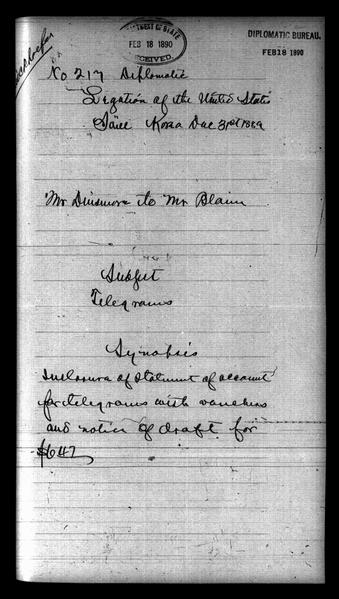 DEPARTMENT OF STATE
FEB 18 1890
RECEIVED
DIPLOMATIC BUREAU.
FEB 18 1890
No 217 Diplomatic
Legation of the United States
Söul Korea Dec 31st 1889
Mr Dinsmore to Mr Blaine
Subject
Telegrams
Synopsis
Inclosure of statement of account
for telegrams with vouchers
and notice of draft for
$6.47